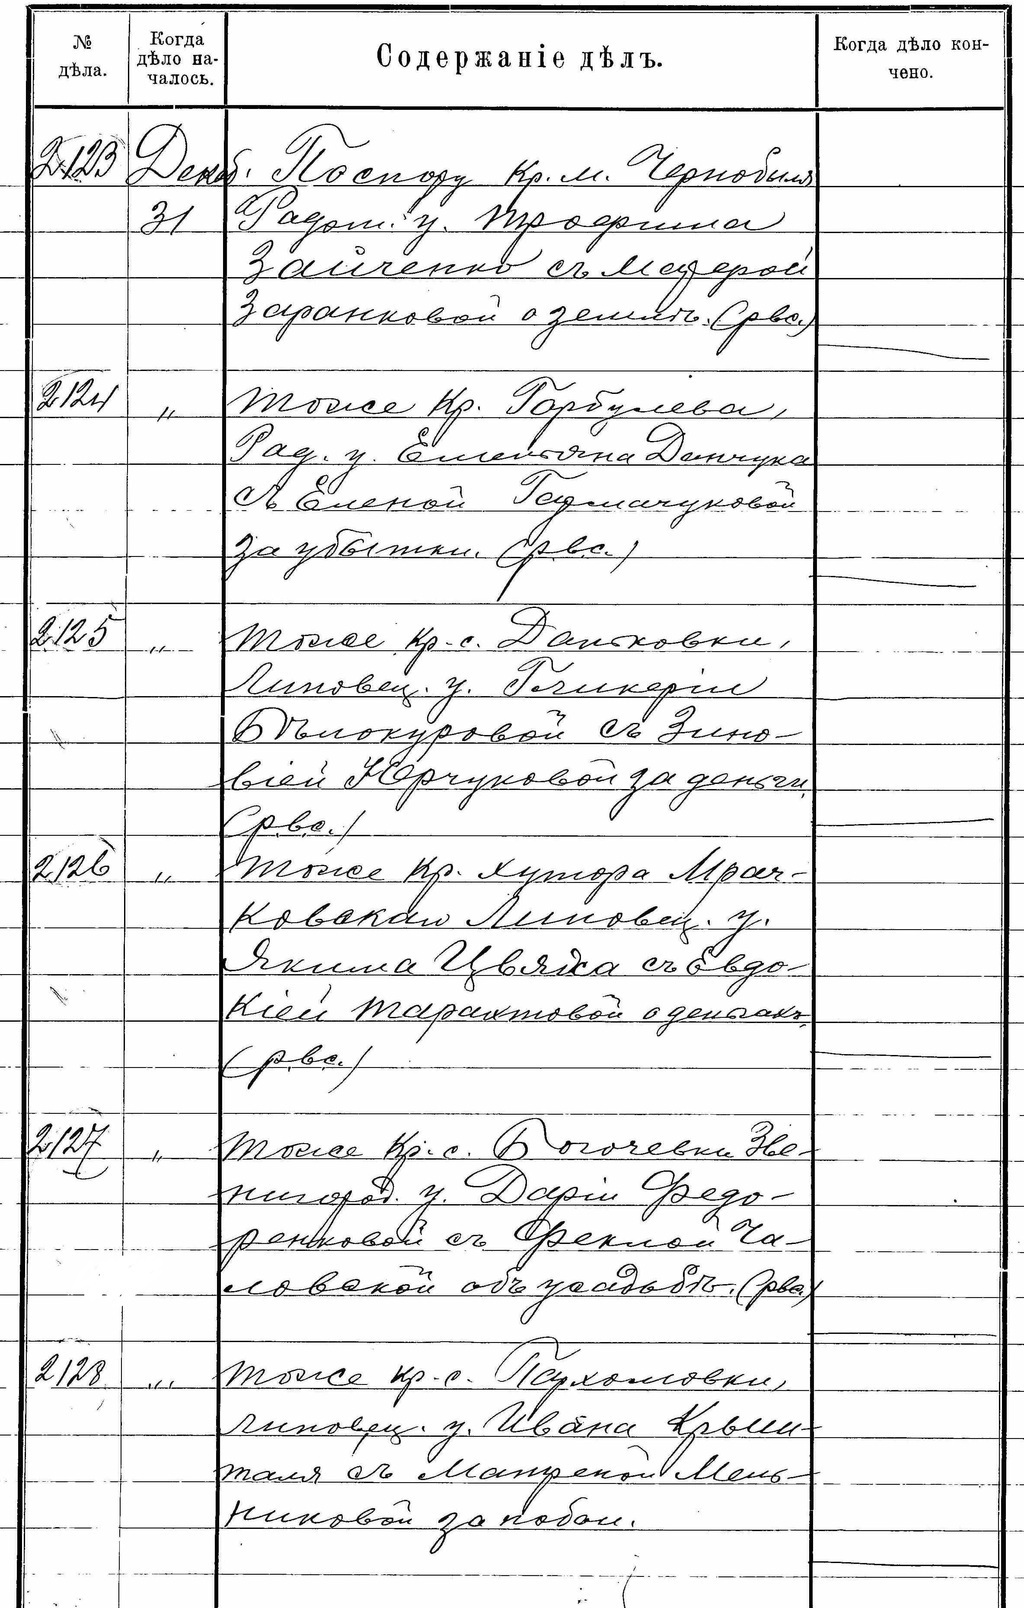 № дѣла. Когда дѣло на-чалось. Содержаніе дѣлъ. Когда дѣло кон-чено.
2123 Декаб. По спору кр. м. Чернобыля
31 Радом. у. Трофима
Зайченко съ
Заранковой о землѣ. (рвс.)
2124 „ Тоже кр. Горбулева,
Рад. у. Емельяна Данчука
съ Еленой
за убытки. (рвс.)
2125 „ Тоже кр. с. Дашковки,
Липовец. у. Гликеріи
Бѣлокуровой съ Зино-
віей Юрчуковой за деньги.
(рвс.)
2126 „ Тоже кр. хутора Мрач-
ковскаго Липовец. у.
Якима Цвяха съ Евдо-
кіей Тарахтовой о деньгахъ.
(рвс.)
2127 „ Тоже кр. с. Богочевки Зве-
нигород. у. Даріи Федо-
ренковой съ Феклой Ча-
ловской объ усадьбѣ. (рвс.)
2128 „ Тоже кр. с. Пархомовки,
Липовец. у. Ивана Крыш-
таля съ Матреной Мель-
никовой за побои.